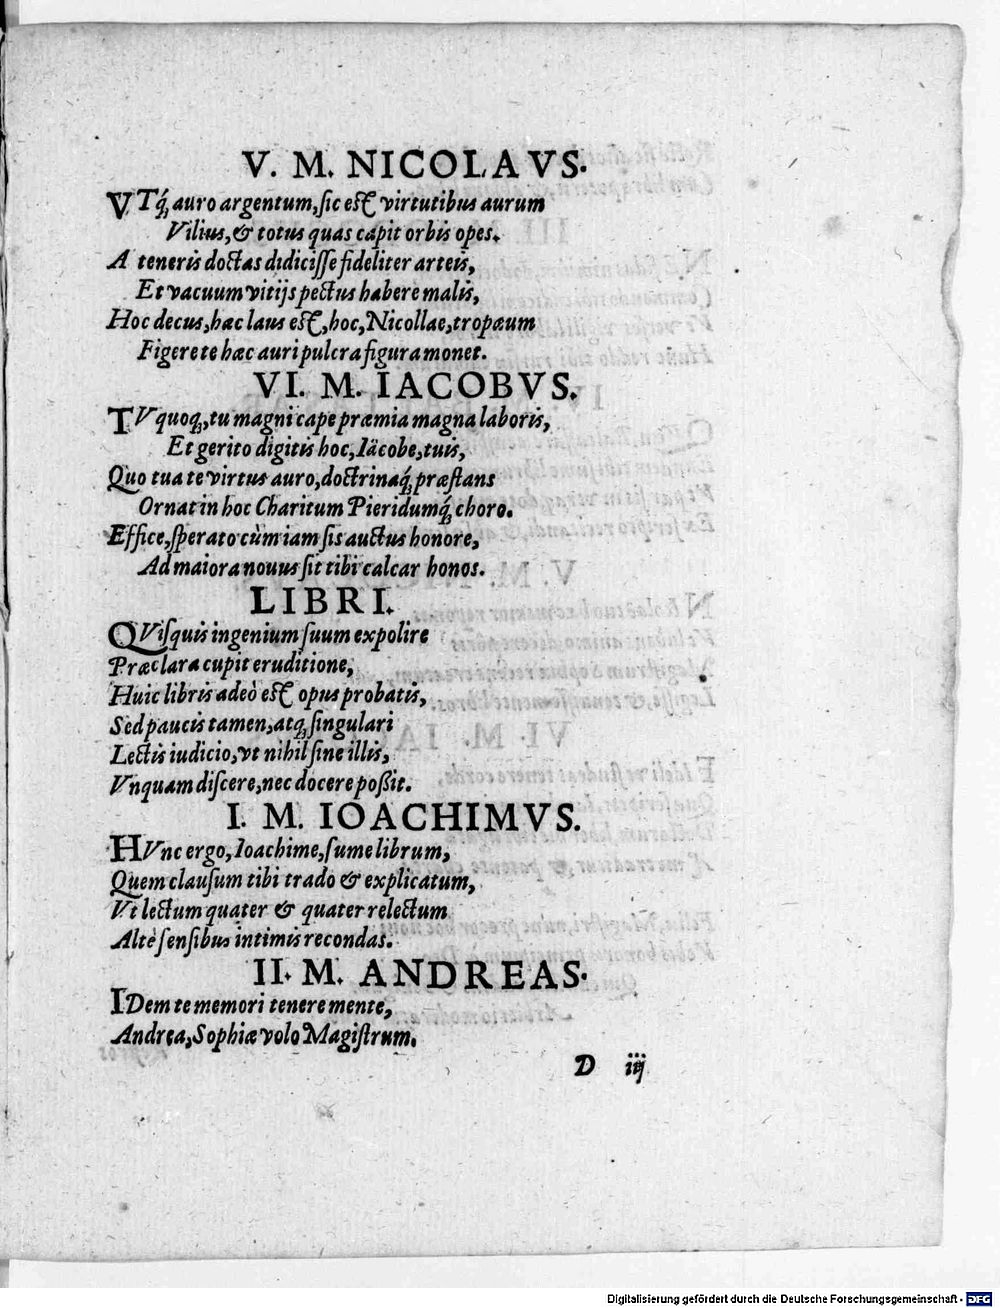 V. M. NICOLAVS.
VTq́; auro argentum, ſic eſt virtutibus aurum
Vilius, & totus quas capit orbis opes.
A teneris doctas didiciſſe fideliter arteis,
Et vacuum vitijs pectus habere malis,
Hoc decus, hæc laus eſt, hoc, Nicollae, tropæum
Figere te hæc auri pulcra figura monet.
VI. M. IACOBVS.
TVquoq;, tu magni cape præmia magna laboris,
Et gerito digitis hoc, Iäcobe, tuis,
Quo tua te virtus auro, doctrinaq́; præſtans
Ornat in hoc Charitum Pieridumq́; choro.
Effice, ſperato cùm iam ſis auctus honore,
Ad maiora nouus ſit tibi calcar honos.
LIBRI.
QViſquis ingenium ſuum expolire
Præclara cupit eruditione,
Huic libris adeò eſt opus probatis,
Sed paucis tamen, atq; ſingulari
Lectis iudicio, vt nihil ſine illis,
Vnquam diſcere, nec docere poßit.
I. M. IOACHIMVS.
HVnc ergo, Ioachime, ſume librum,
Quem clauſum tibi trado & explicatum,
Vt lectum quater & quater relectum
Altè ſenſibus intimis recondas.
II. M. ANDREAS.
IDem te memori tenere mente,
Andrea, Sophiæ volo Magiſtrum.
D iij
Digitalisierung gefördert durch die Deutsche Forschungsgemeinschaft - DFG